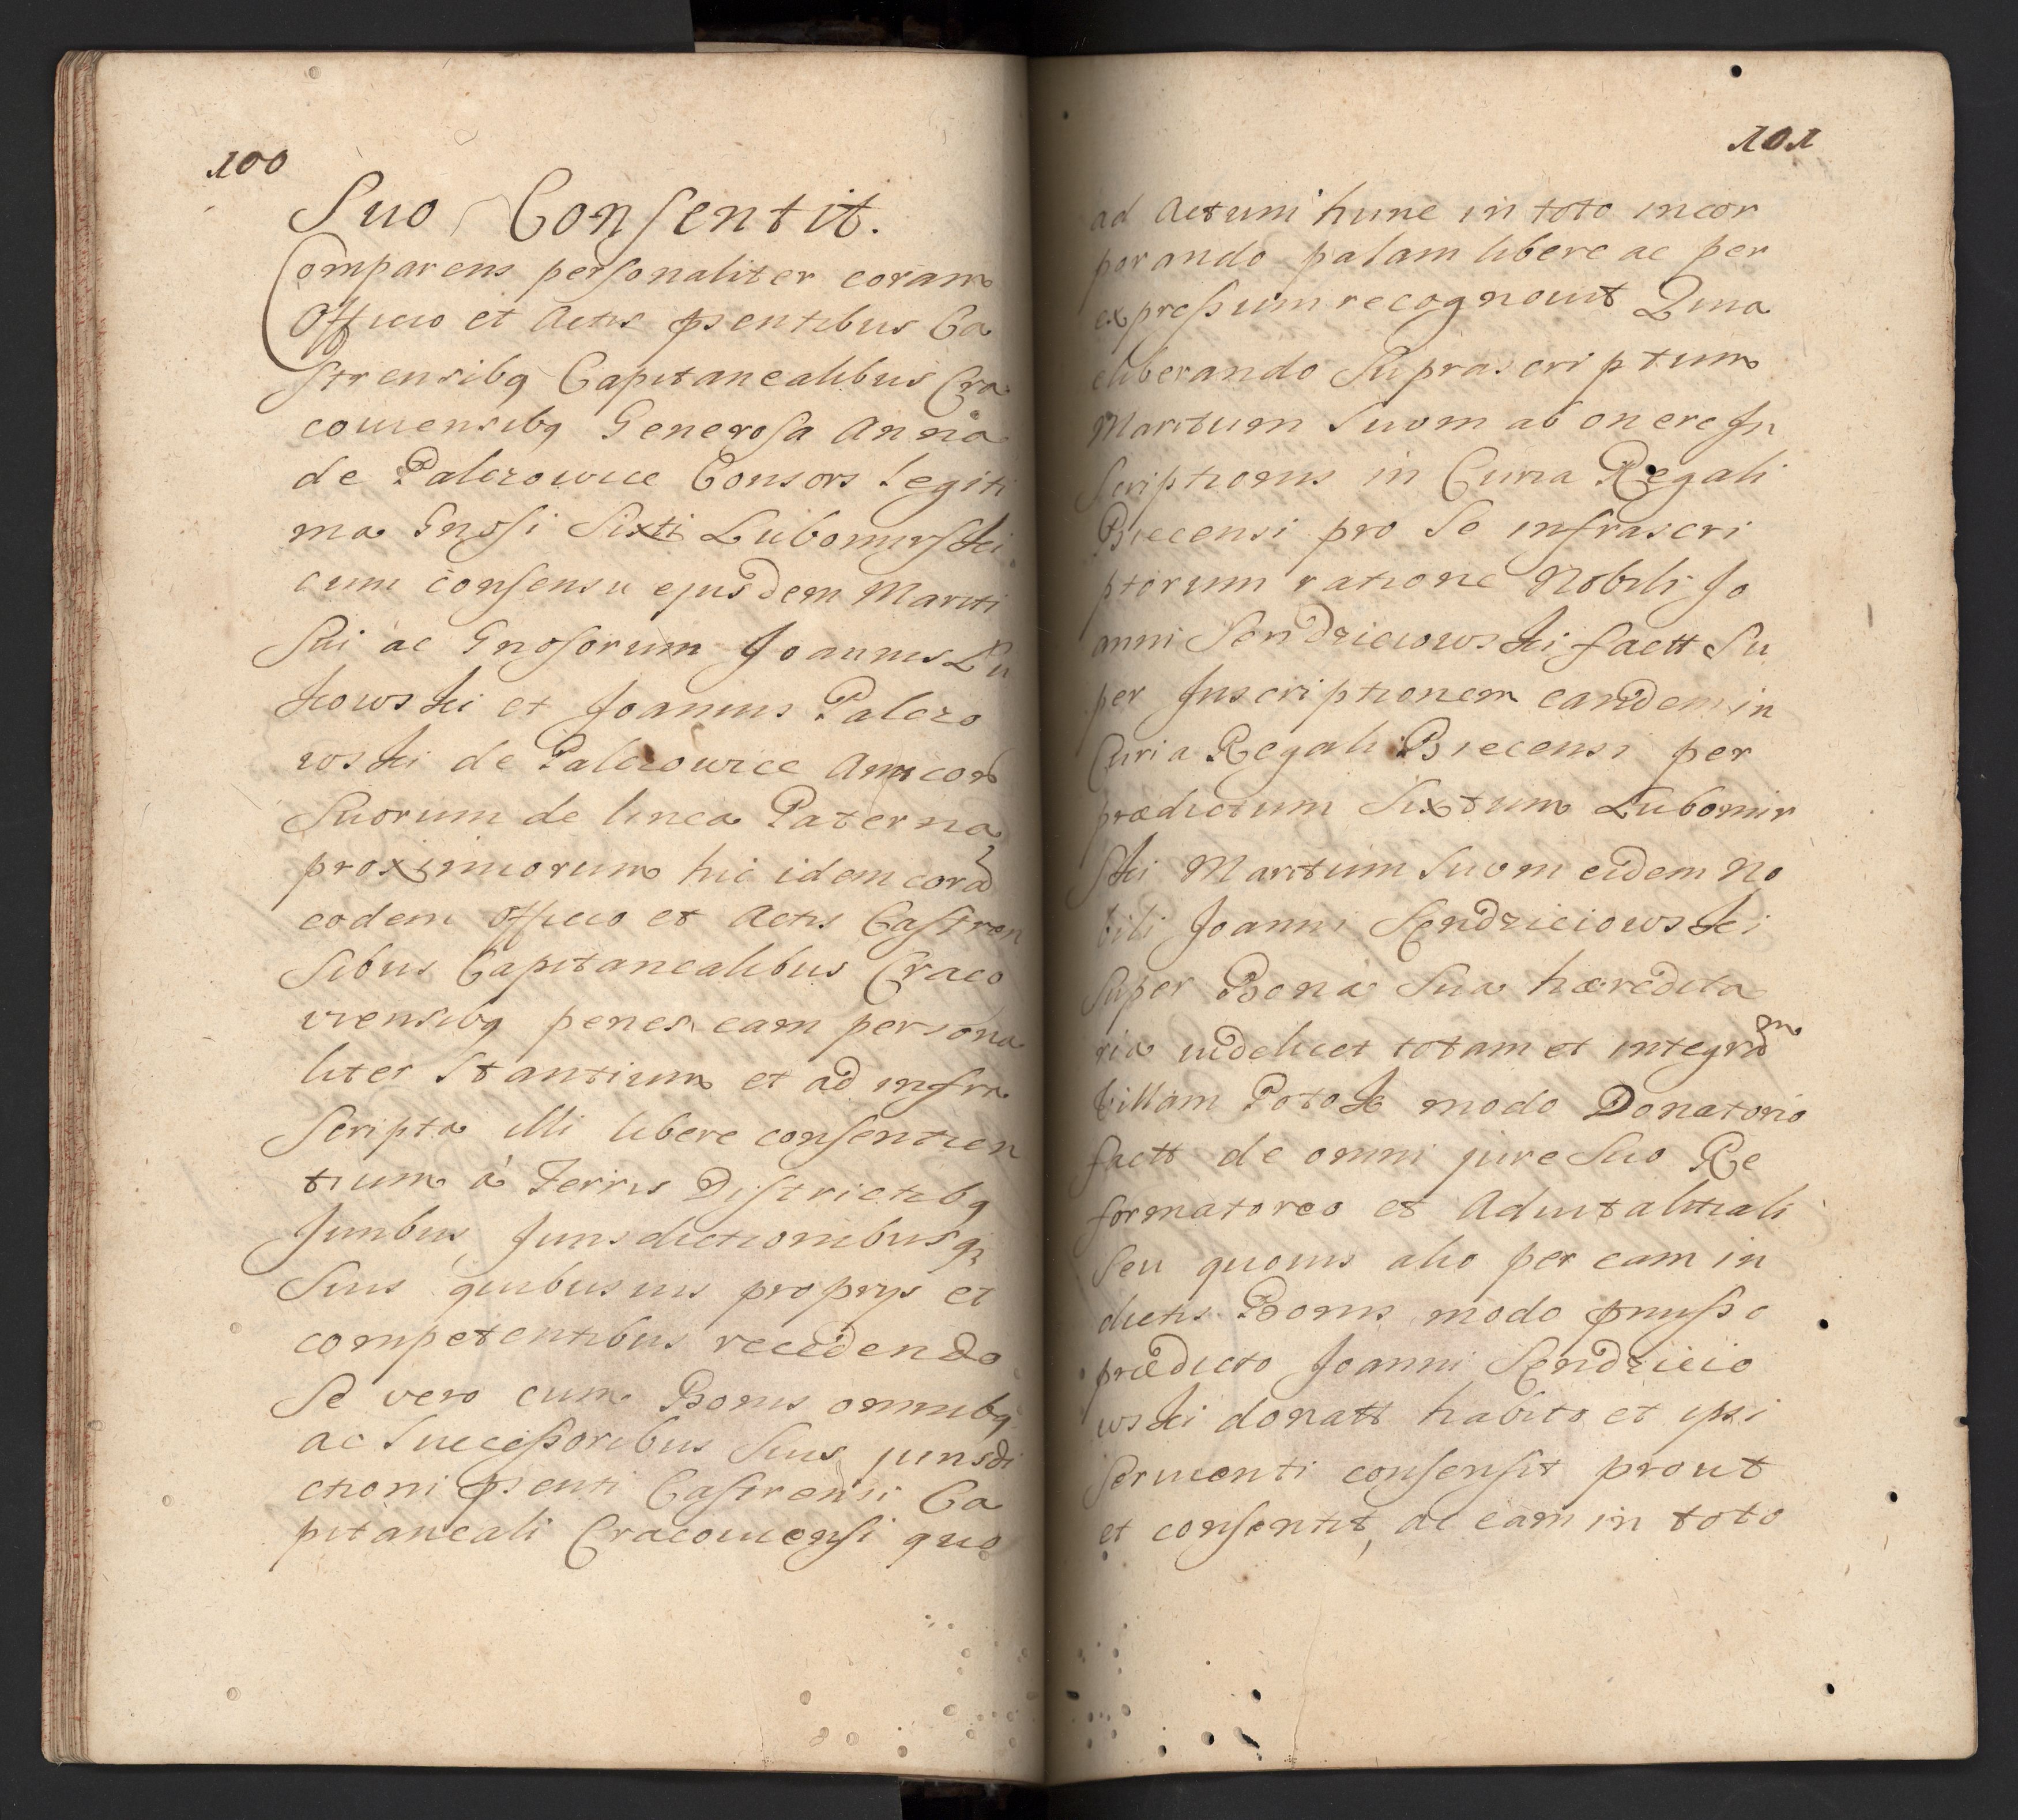 100
Suo Consentit.
Comparens personaliter coram
Officio et Actis pſentibus Ca
strensibq Capitanealibus Cra
coviensibq Generosa Anna
de Palczowice Consors legiti
ma Gnosi Sixti Lubomirski
cum consensu ejusdem Mariti
Sui ac Gnosorum Joannis Lu
kowski et Joannis Palczo
wski de Palczowice Amicor
Suorum de linea Paterna
proximiorum hic idem corã
eodem officio et Actis Castren
sibus Capitanealibus Craco
viensibq penes eam persona
liter Stantium et ad infra
Scripta illi libere consentien
tium à Terris Districtibq
Juribus Jurisdictionibusq
Suis quibusvis proprys et
competentibus recedendo
Se vero cum Bonis omnibq
ac Successoribus Suis jurisdi
ctioni pſenti Castrensi Ca
pitaneali Cracoviensi quo
101
ad Actum hunc in toto incor
porando palam libere ac per
expressum recognovit Quia
eliberando Suprascriptum
Maritum Suom ab onere In
Scriptionis in Curia Regali
Biecensi pro Se infrascri
ptorum ratione Nobili Jo
anni Sendziciowski factt Su
per Inscriptionem eandem in
Curia Regali Biecensi per
prædictum Sixtum Lubomir
ski Maritum Suom eidem No
bili Joanni Sendziciowski
Super Bona Sua hæredita
ria videlicet totam et integram
Villam Potok modo Donatorio
factt de omni jure Suo Re
formatoreo et Advitalitiali
Seu quovis alio per eam in
dictis Bonis modo pmisso
prædicto Joanni Sendzicio
wski donatt habito et ipsi
Servienti consensit prout
et consentit, ac eam in toto